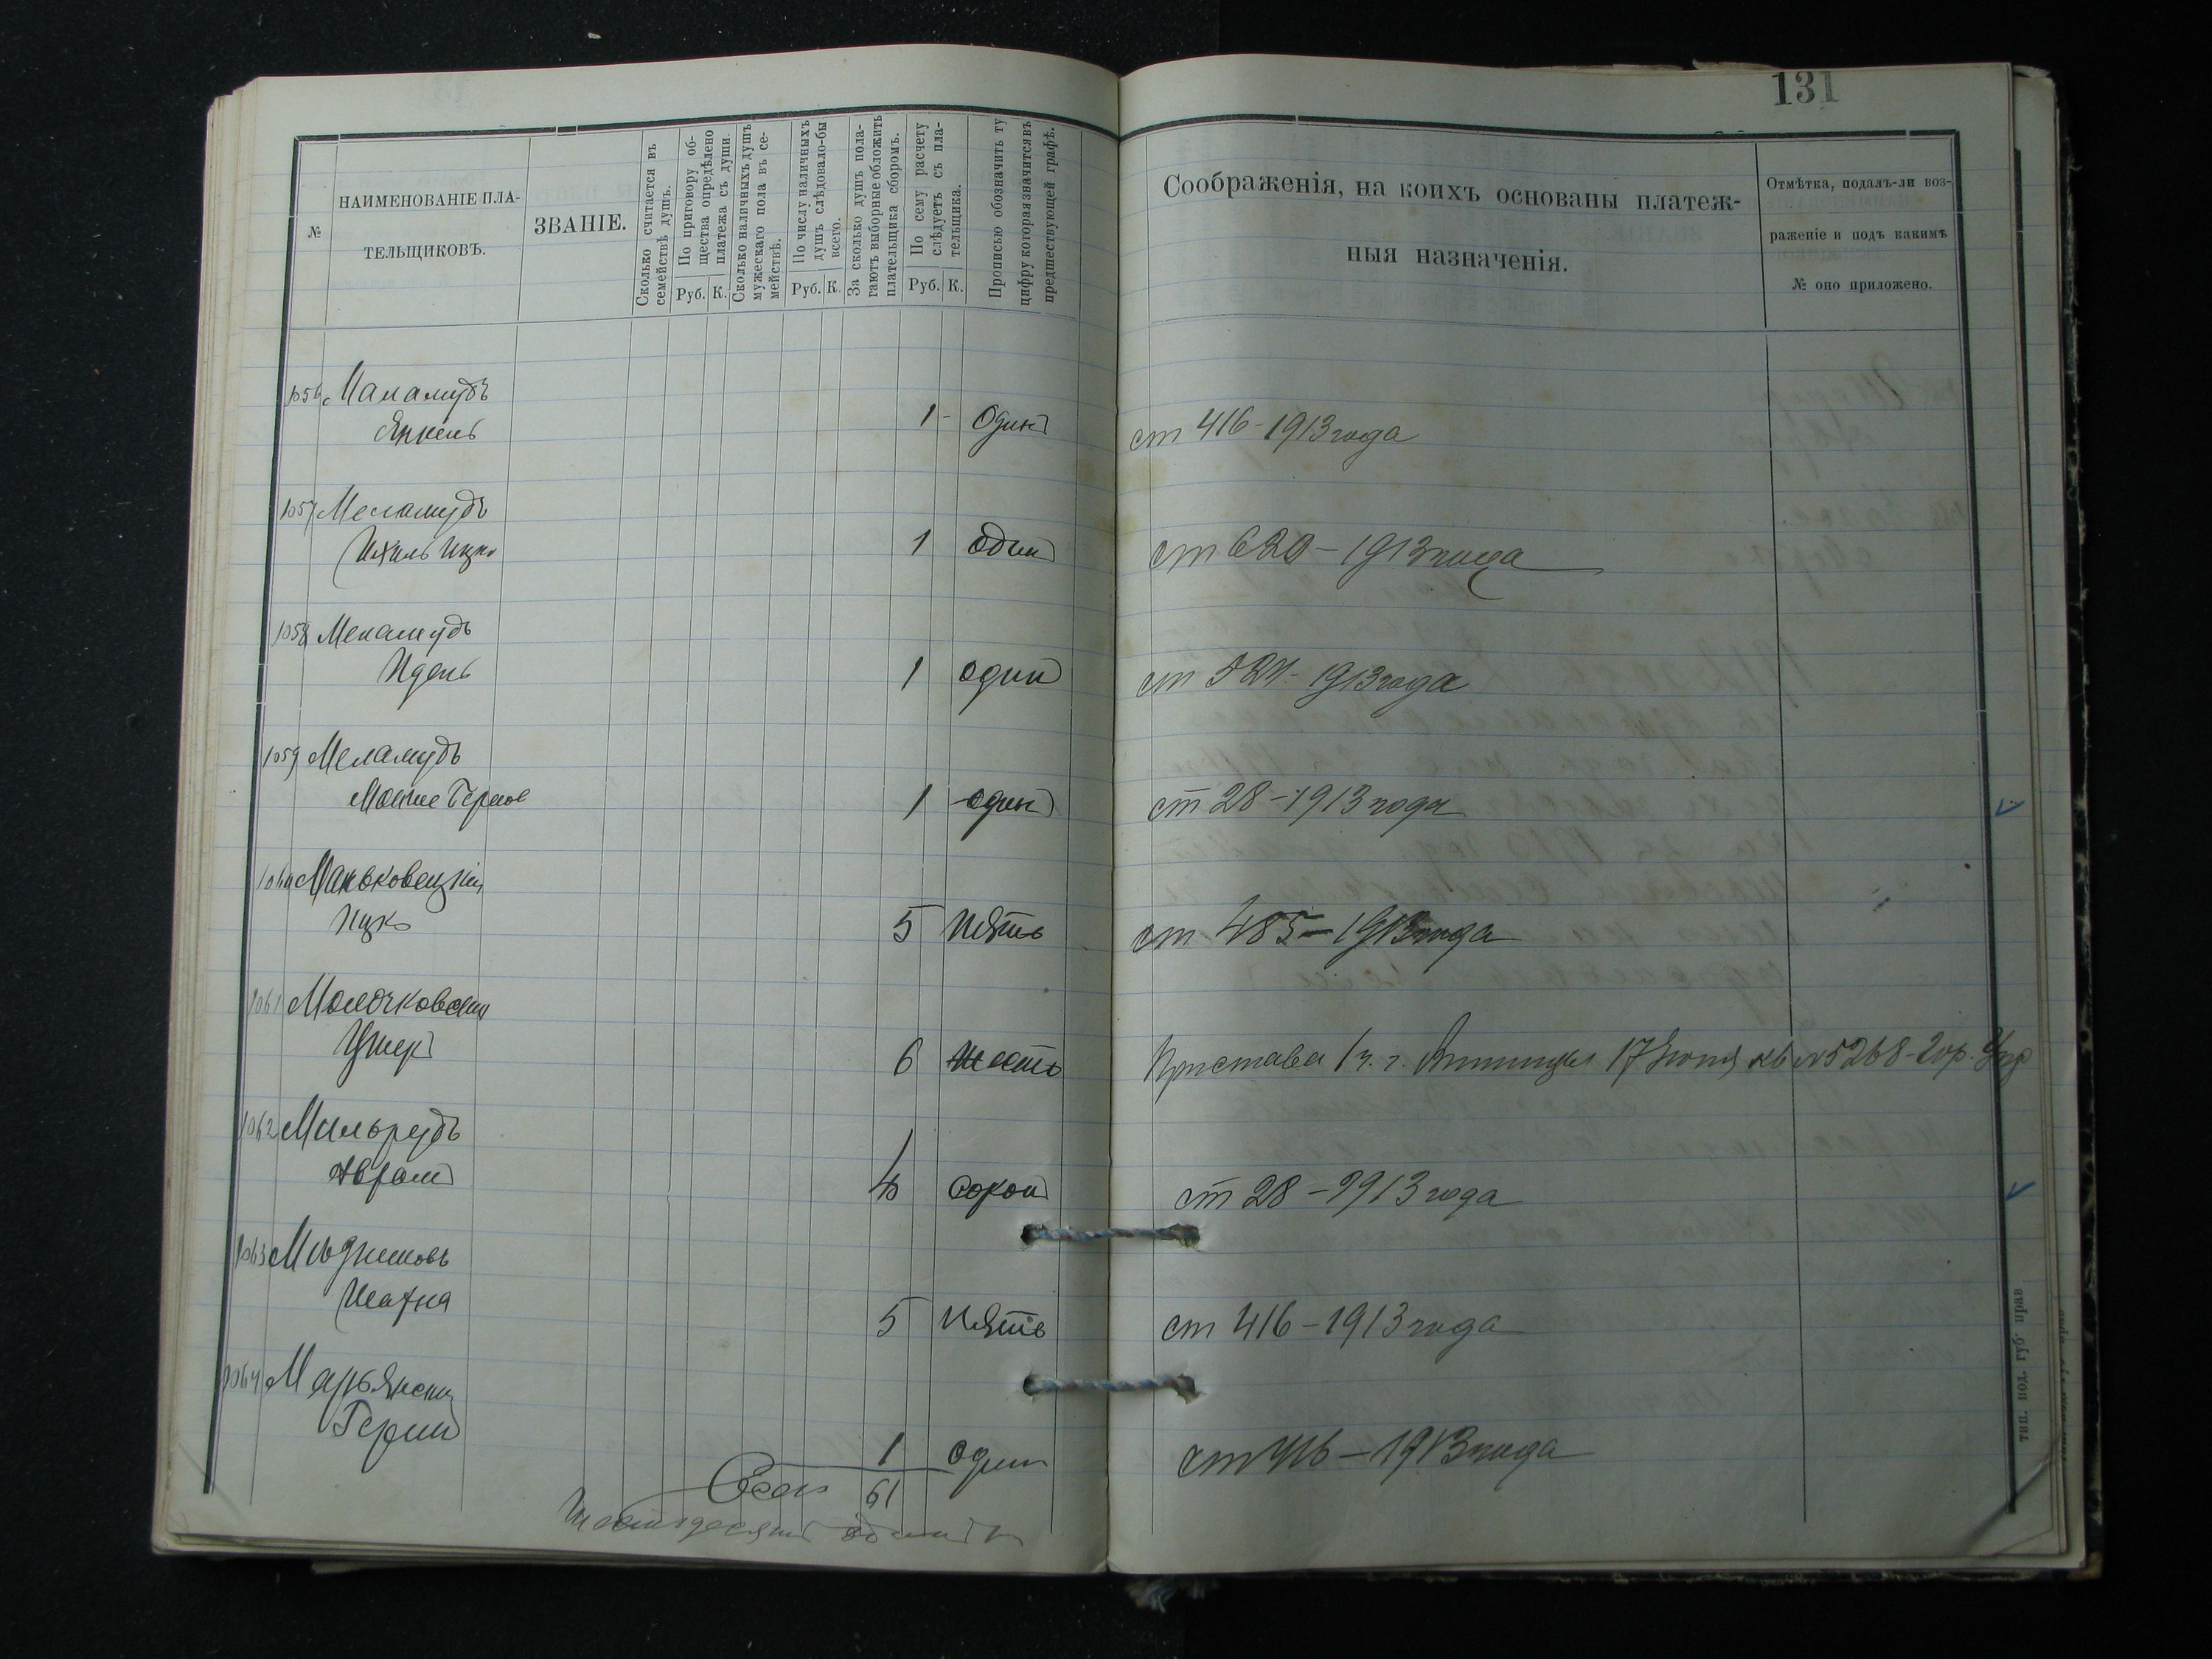 131
№
НАИМЕНОВАНІЕ ПЛА-
ТЕЛЬЩИКОВЪ.
ЗВАНІЕ.
Сколько считается въ
семействѣ душъ.
По приговору об-
щества опредѣлено
платежа съ души.
Руб. К.
Сколько наличныхъ душъ
мужескаго пола въ се-
мействѣ.
По числу наличныхъ
душъ слѣдовало-бы
всего.
Руб. К.
За сколько душъ пола-
гаютъ выборные обложить
плательщика сборомъ.
По сему расчету
слѣдуетъ съ пла-
тельщика.
Руб. К.
Прописью обозначить ту
цифру которая значится въ
предшествующей графѣ.
Соображенія, на коихъ основаны платеж-
ныя назначенія.
Отмѣтка, подалъ-ли воз-
раженіе и подъ какимъ
№ оно приложено.
1056 Маламудъ
Янкель 1 - Один ст 416 - 1913 года
1057 Меламудъ
Ихиль Ицко 1 один ст 620 - 1913 года
1058 Меламудъ
Идель 1 один ст 524 - 1913 года
1059 Меламудъ
Мошке 1 один ст 28 - 1913 года
1060 Маньковецкий
Ицко 5 Пять ст 485 - 1913 года
1061
Ушер 6 Шесть Пристава 1 ч. г. Винницы 17 Июня №5268 - гор. Упр
1062 Мильрудъ
Аврам 40 сорок ст 28 - 1913 года
1063
Шахна 5 Пять ст 416 - 1913 года
1064 Марьянски
Герш 1 один ст 416 - 1913 года
Всего 61
Шестьдесят один
тип. под. губ. прав